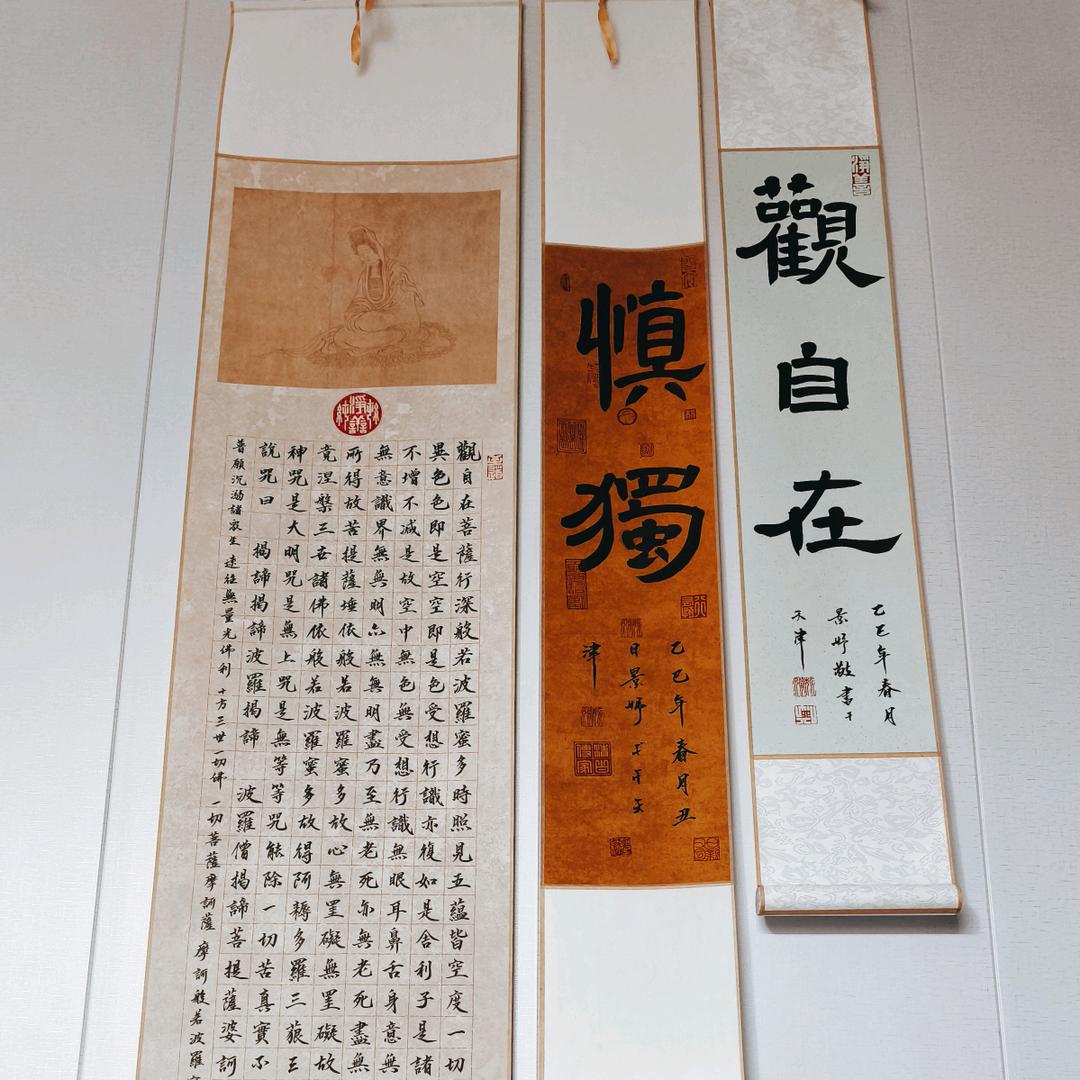 觀自在
乙巳年春月
景妤敬書于
天津
慎獨
乙巳年春月丑
日景妤書于天
津
觀自在菩薩行深般若波羅蜜多時照見五蘊皆空度一切
異色色即是空空即是色受想行識亦復如是舍利子是諸
不增不減是故空中無色無受想行識無眼耳鼻舌身意無
無意識界無無明亦無無明盡乃至無老死亦無老死盡無
所得故菩提薩埵依般若波羅蜜多故心無罣礙無罣礙故
竟涅槃三世諸佛依般若波羅蜜多故得阿耨多羅三藐三
神咒是大明咒是無上咒是無等等咒能除一切苦真實不
說咒曰 揭諦揭諦波羅揭諦 波羅僧揭諦菩提薩婆訶
普願沉溺諸眾生 速往無量光佛刹 十方三世一切佛 一切菩薩摩訶薩 摩訶般若波羅